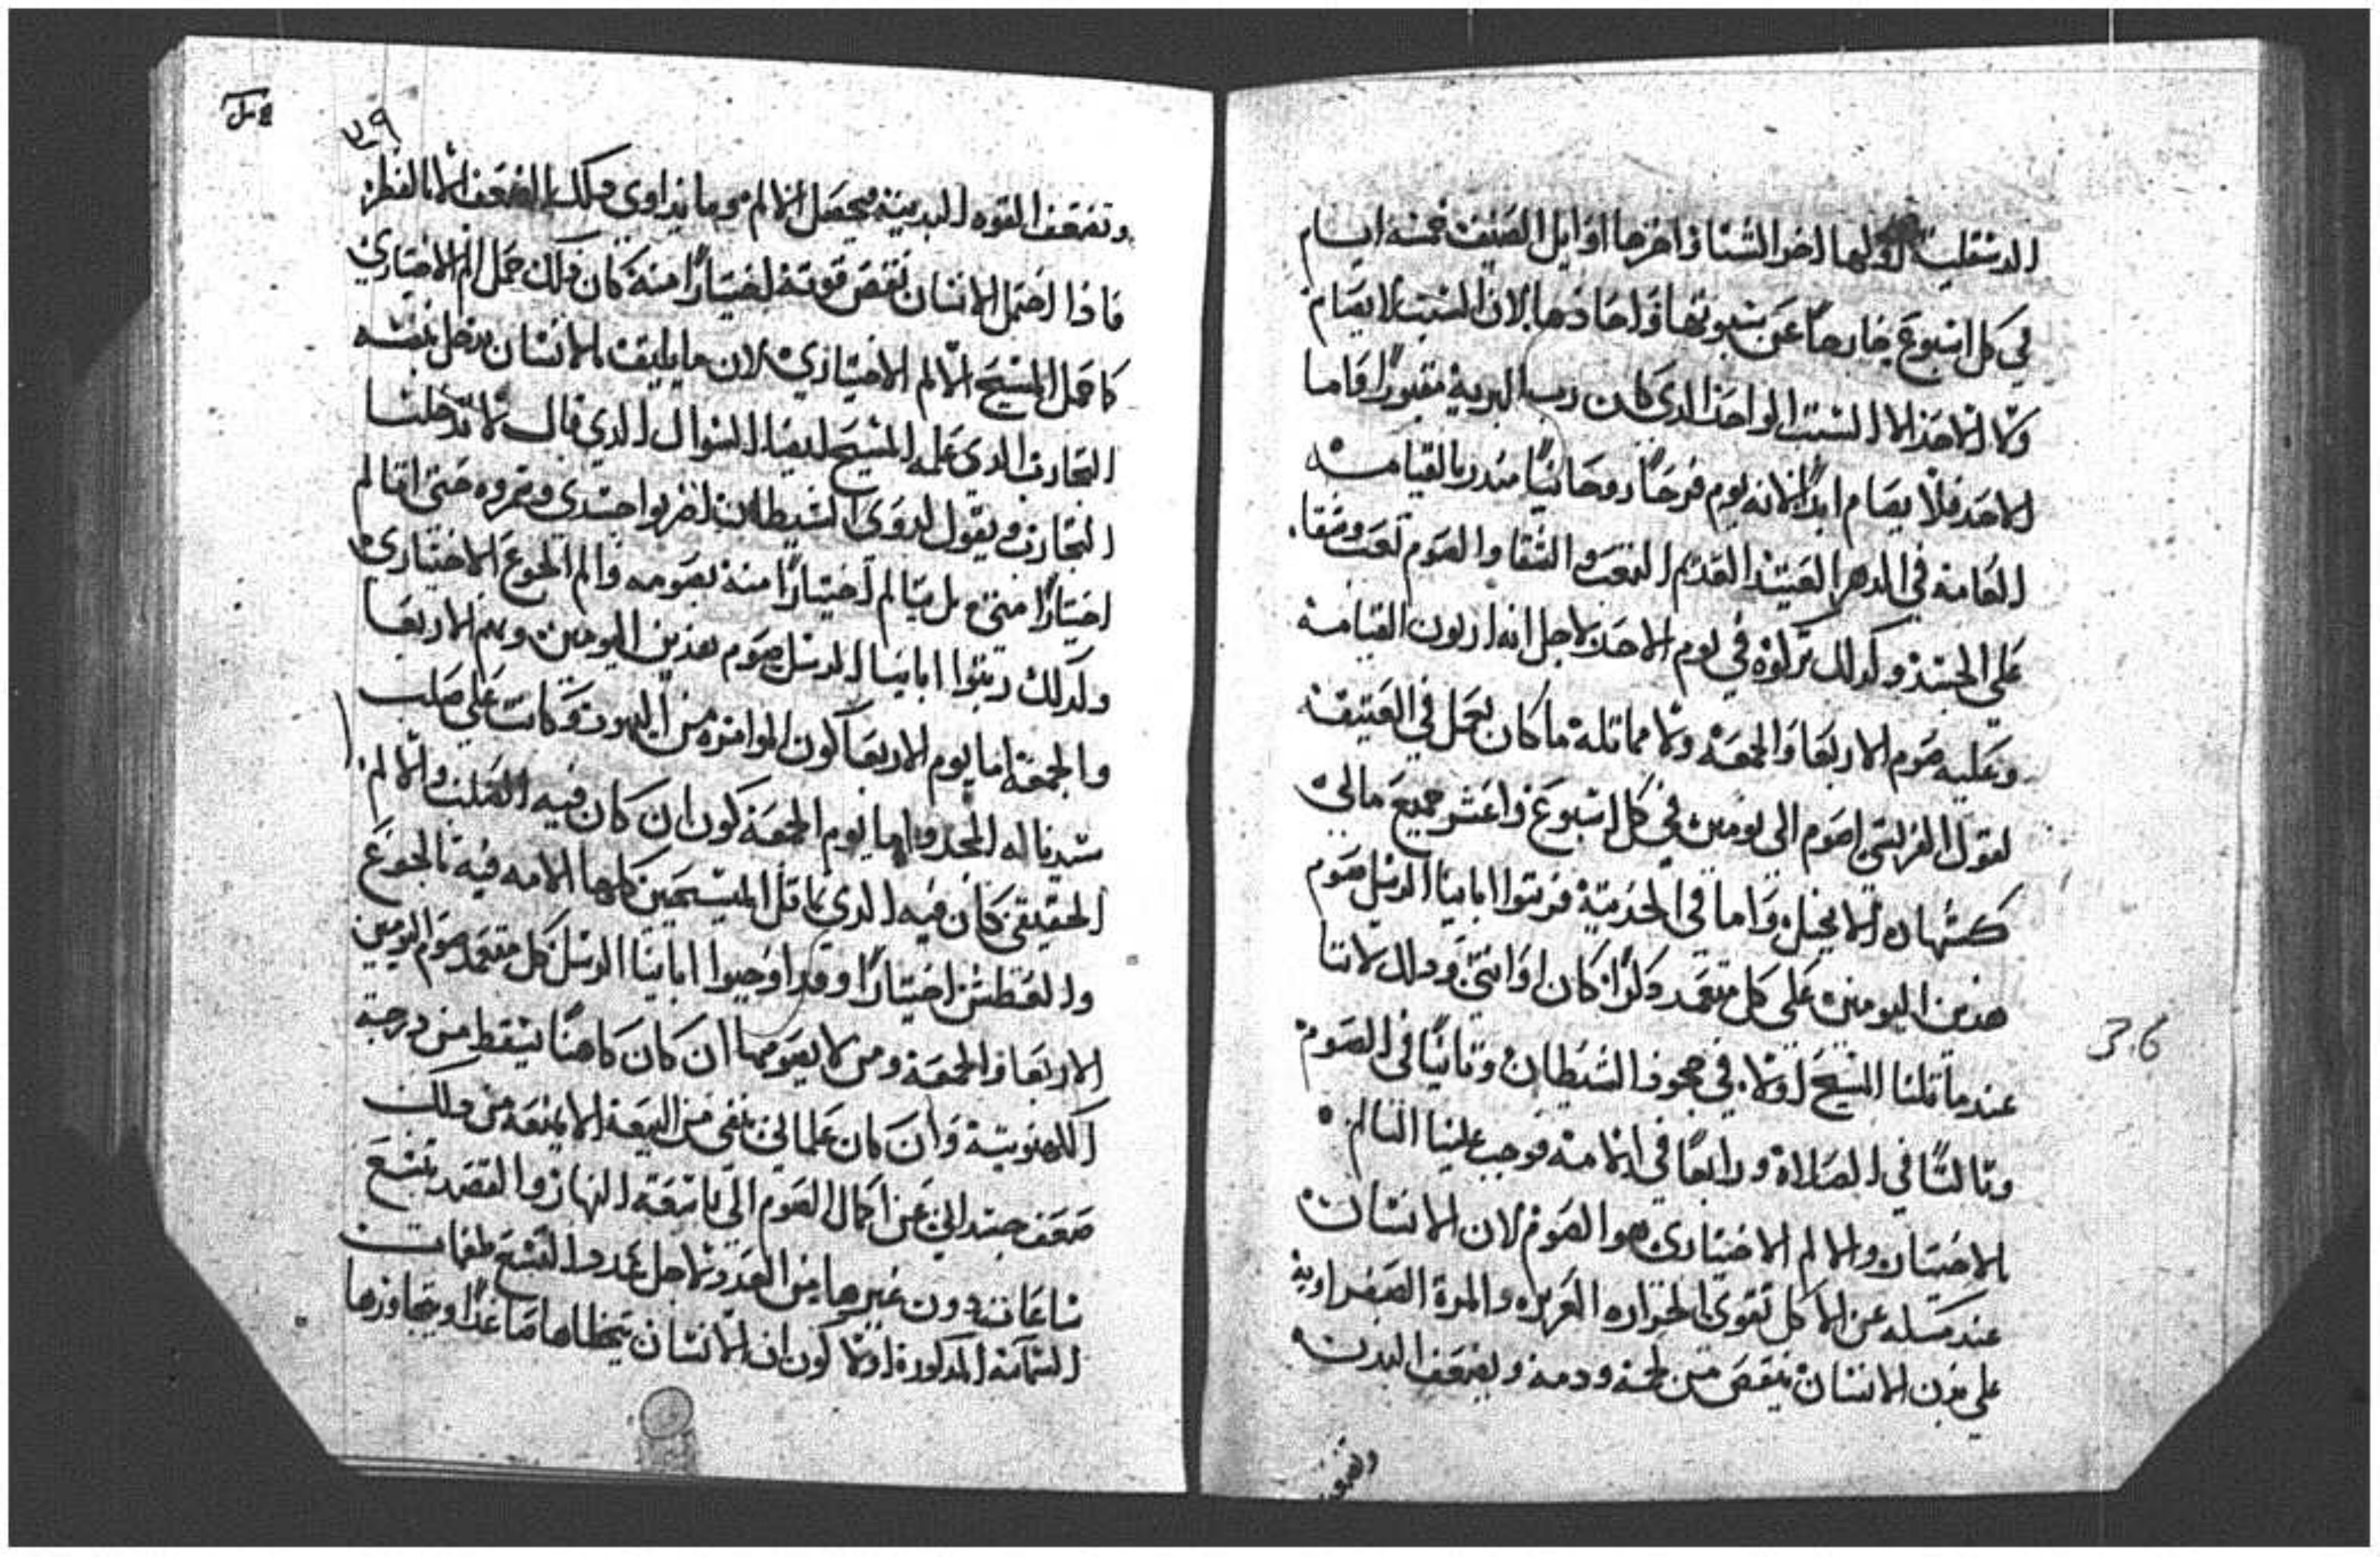 الدسقلية اولها اخر الشتا واخرها اوايل الصيف خمسة ايام
في كل اسبوع خارجا عن سبوتها واحادها لان السبت لا يصام
ولا الاحد الا السبت الواحد الدي كان رب البرية مقبورا فاما
الاحد فلا يصام ابدا لانه يوم فرحا روحانيا مندر بالقيامه
العامه في الدهر العتيد القديم التعب والشقا والصوم تعب وشقا
على الجسد وكدلك تركوه في يوم الاحد لاجل انه اربون القيامة
وعليه صوم الاربعا والجمعة ولا مماتلة ما كان يعمل في العتيقة
لقول الفريسي اصوم الى يومين في كل اسبوع واعشر جميع مالي
كشهادة الانجيل واما في الحديتة فرتبوا اباينا الرسل صوم
هدين اليومين على كل متعمد دكرا كان او انتى ودلك لاننا
عندما تلنا المسيح اولا في جحود الشيطان وتانيا في الصوم
وتالتا في الصلاة ورابعا في الامه فوجب علينا التالم
بالاختيار والالم الاختياري هو الصوم لان الانسان
عند مسكه عن الاكل تقوى الحراره الغريزه والمرة الصفراوية
على بدن الانسان ينقص من لحمه ودمه ويضعف البدن
وتضعف
36
٧٩
وتضعف القوه البدنية فيحصل الالم وما يداوي دلك الضعف الا بالفطر
فادا احتمل الانسان نقص قوته اختيارا منه كان دلك حمل الم الاختياري
كما حمل المسيح الالم الاختياري لان ما يليق بالانسان يدخل نفسه
التجارب الدي علمه المسيح ايضا السوال الدي قال لا تدخلنا
التجارب ويقول لدوي الشيطان اضربوا جسدي ومروه حتى اتالم
اختيارا مني بل يتالم اختيارا منه بصومه والم الجوع الاختياري
ولدلك رتبوا اباينا الرسل صوم هدين اليومين وهم الاربعا
والجمعة اما يوم الاربعا كون الموامره من اليهود وكانت على صلب
سيدنا له المجد واما يوم الجمعة كون ان كان فيه الصلب والالم
الحقيقي كان فيه الدي ماتل المسيحيين كلها الامه فيه بالجوع
والعطش اختيارا وقد اوجبوا اباينا الرسل كل متعمد صوم اليومين
الاربعا والجمعة ومن لا يصومها ان كان كاهنا يسقط من درجة
الكهنوتية وان كان علماني ينفى من البيعة الا يمنعه من دلك
ضعف جسداني عن اكمال الصوم الى تاسعة النهار والقصد بتسع
ساعات دون غيرها من العدد لاجل عدد التسع طغمات
السمائة المدكورة اولا كون ان الانسان يتخطاها صاعدا ويتجاوزها